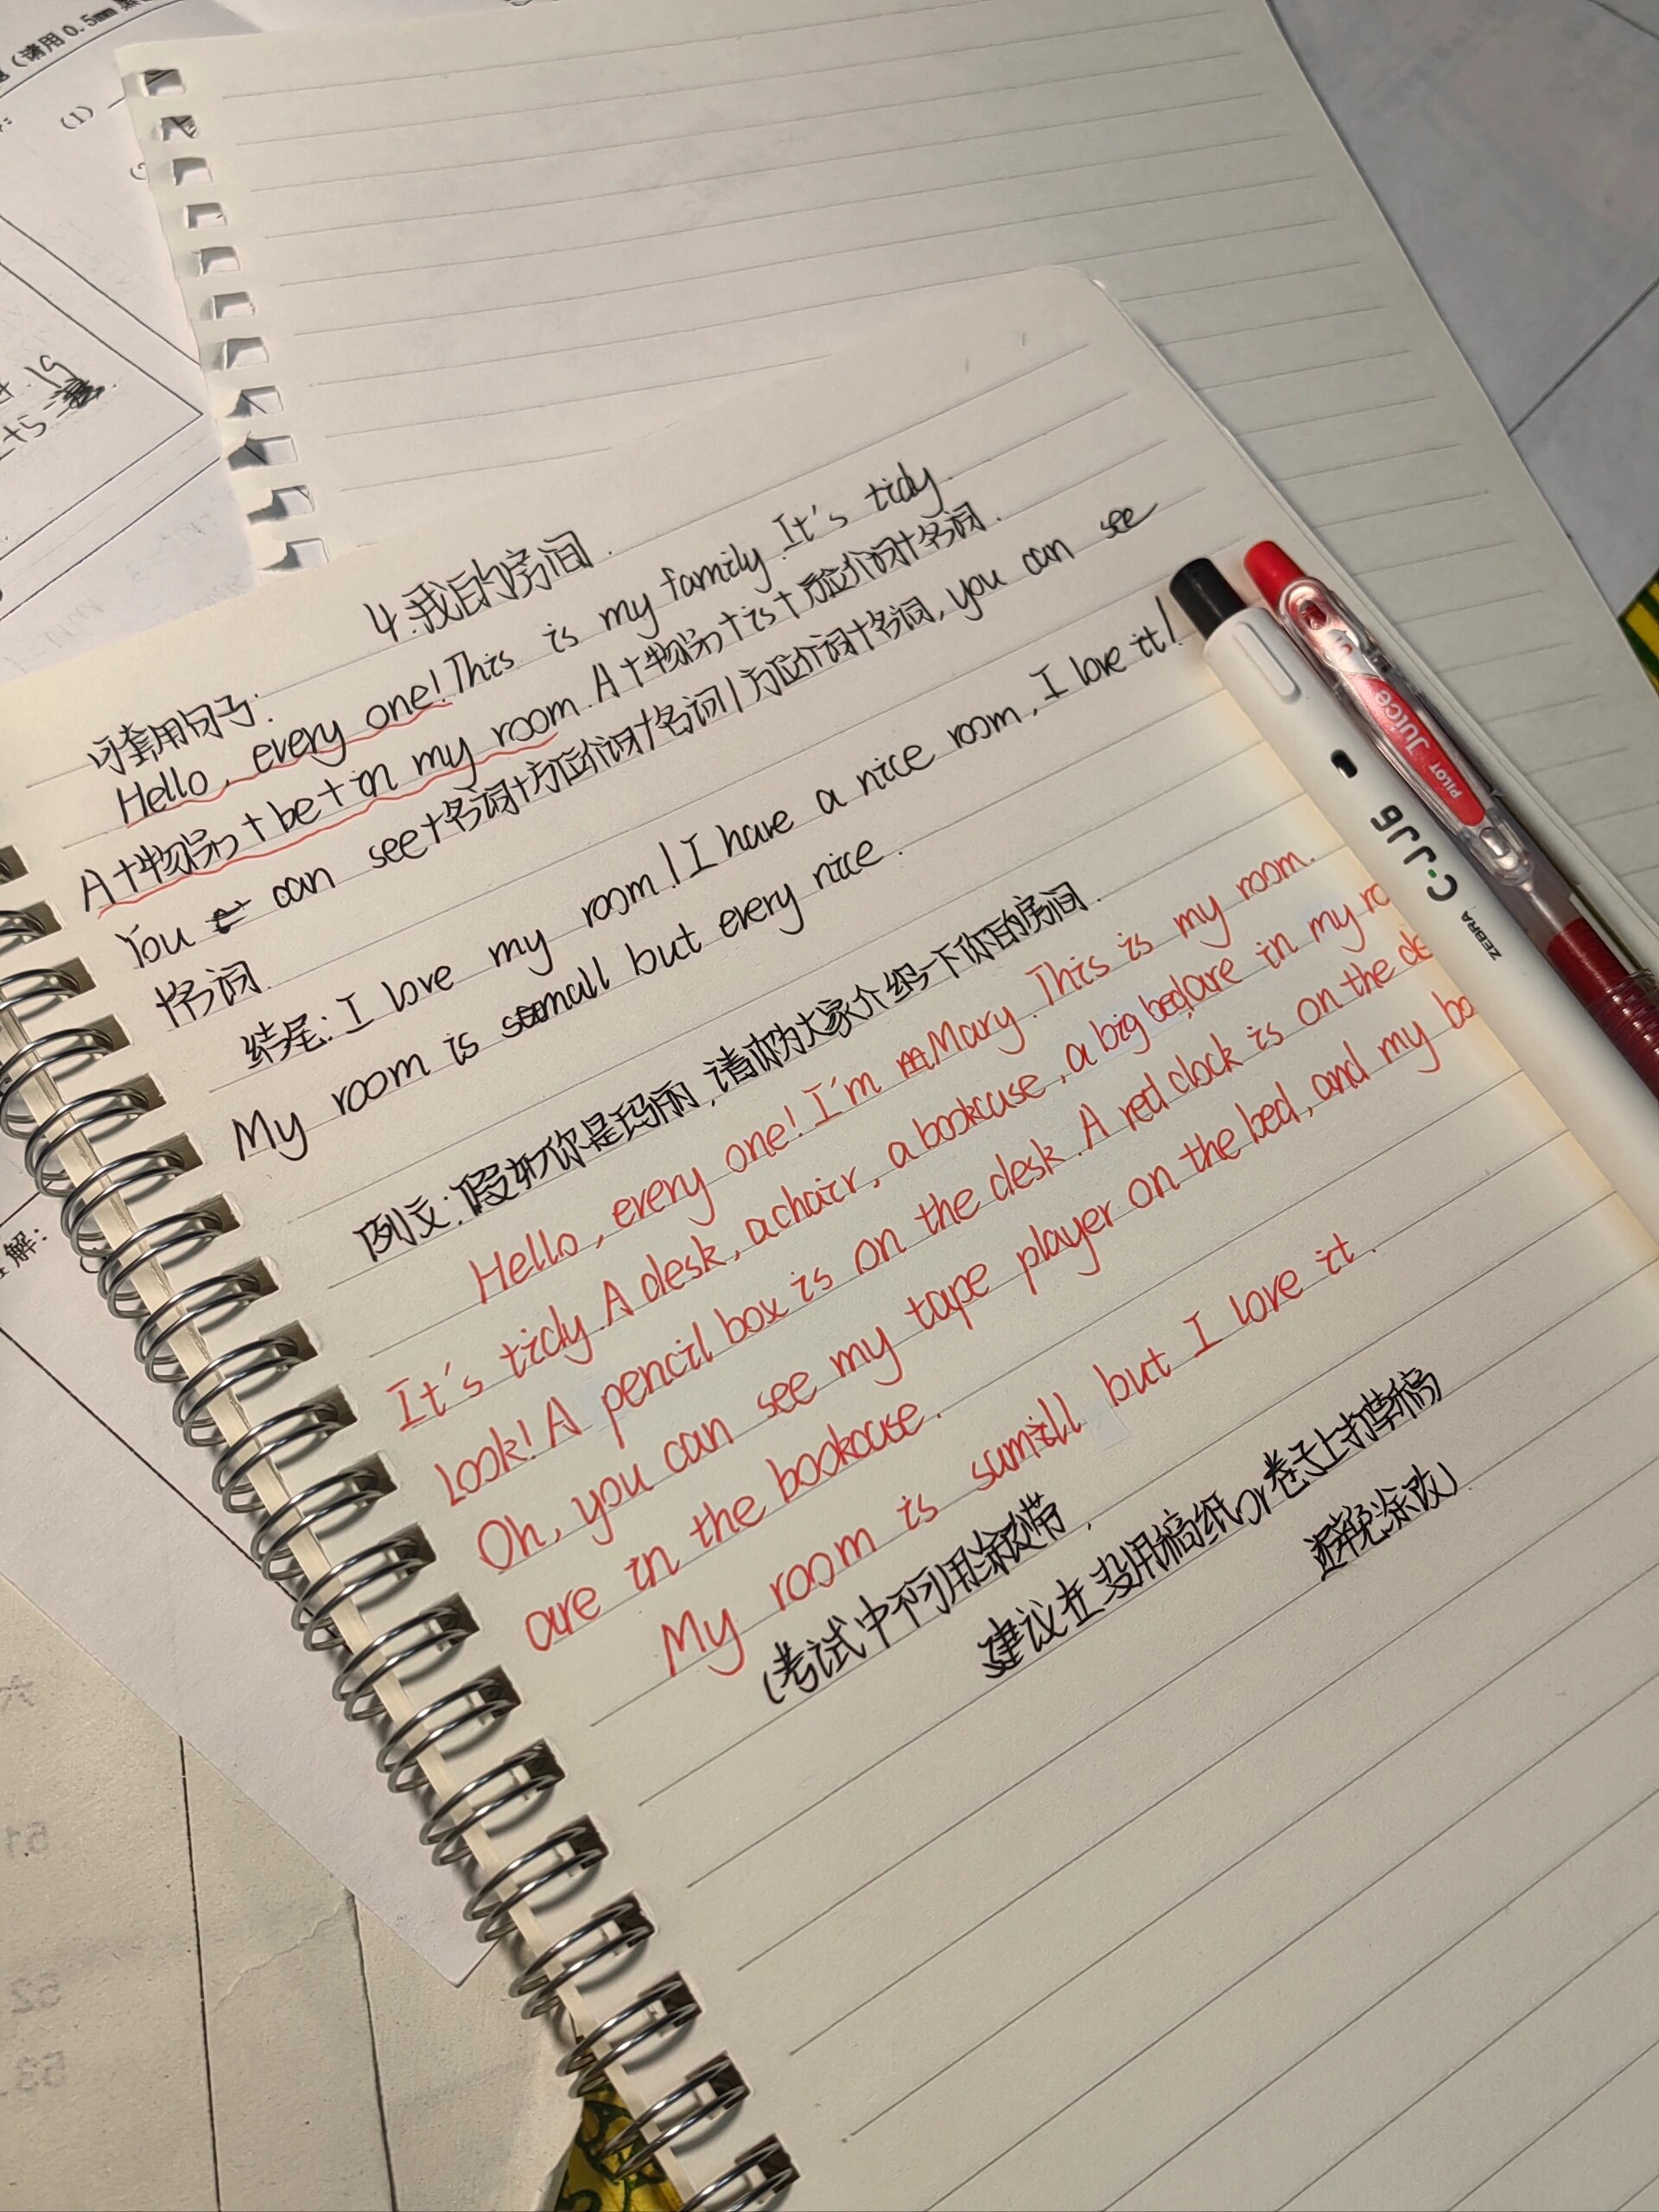 (请用0.5mm黑
(1)
4.我的房间.
可套用句子:
Hello, every one! This is my family. It's tidy.
A+物品+be+in my room. A+物品+is+方位介词+名词.
You can see+名词+方位介词+名词/方位介词+名词, you can see
+名词.
结尾: I love my room! I have a nice room, I love it!
My room is small but every nice.
例文: 假如你是玛丽, 请你为大家介绍一下你的房间.
Hello, every one! I'm Mary. This is my room.
It's tidy. A desk, a chair, a bookcase, a big bed, are in my ro
Look! A pencil box is on the desk. A red clock is on the de
Oh, you can see my tape player on the bed, and my bo
are in the bookcase.
My room is sumill but I love it.
(考试中不可用涂改带,
建议在没用稿纸or卷子上打草稿
避免涂改)
解:
PILOT Juice
ZEBRA C.JJ6
51
52
53